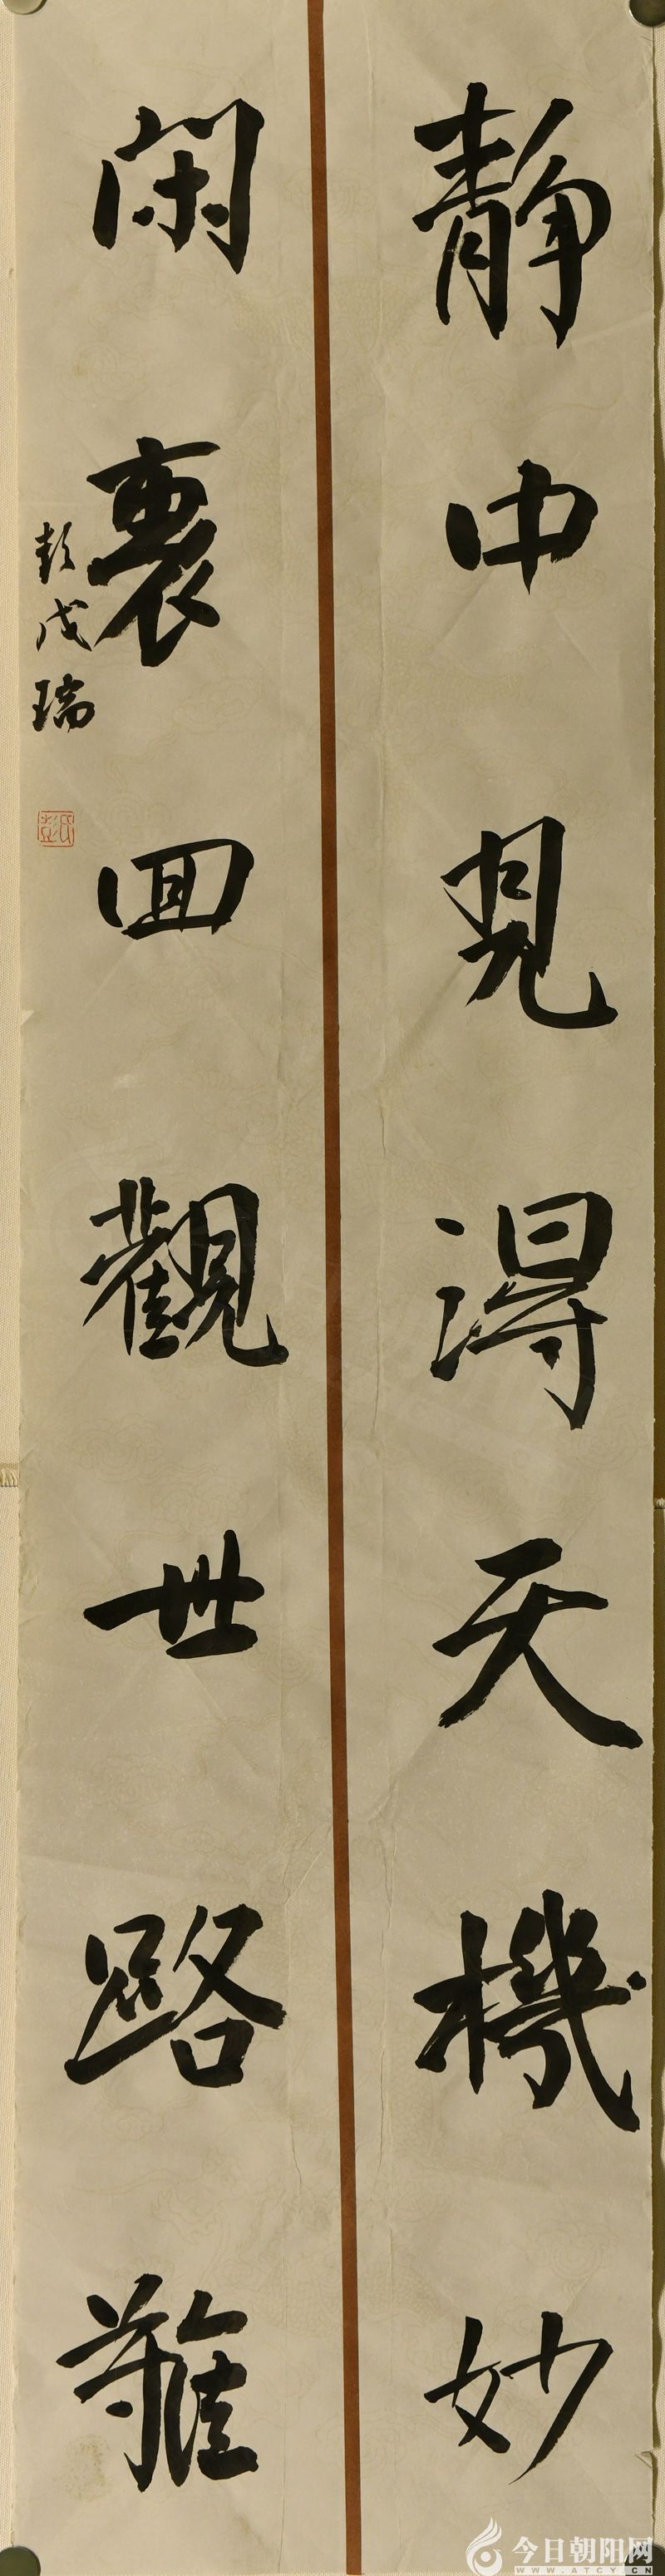 静中見得天機妙
閑裏回觀世路難
彭茂瑞
彭氏
今日朝阳网
WWW.ATCY.CN